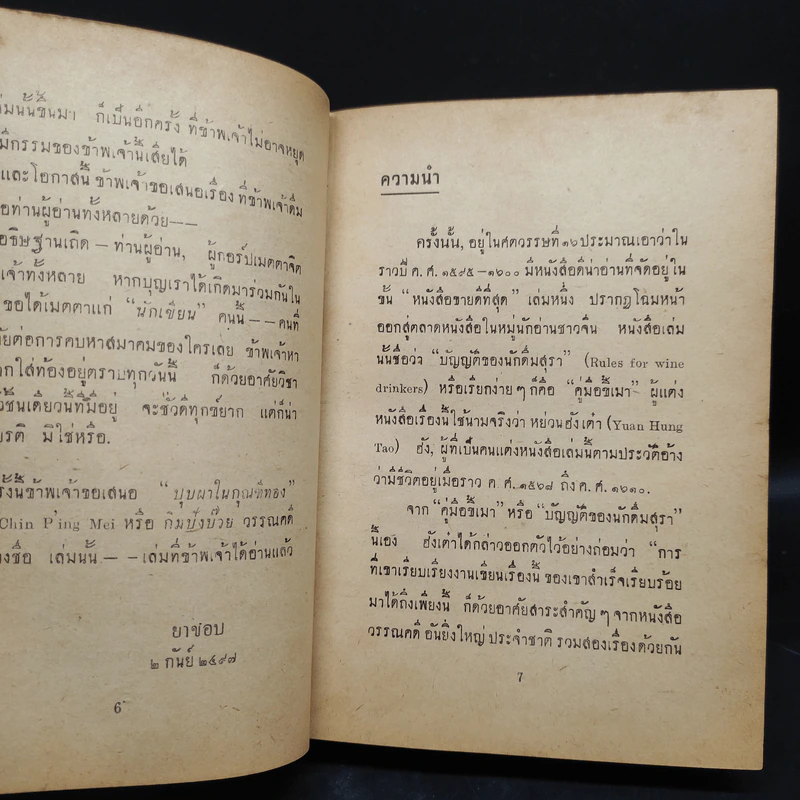 มนั้นขึ้นมา ก็เป็นอีกครั้ง ที่ข้าพเจ้าไม่อาจหยุด
มีกรรมของข้าพเจ้านี้เสียได้
และโอกาสนี้ ข้าพเจ้าขอเสนอเรื่อง ที่ข้าพเจ้าดื่ม
อท่านผู้อ่านทั้งหลายด้วย——
อธิษฐานเถิด — ท่านผู้อ่าน, ผู้กอร์ปเมตตาจิต
เจ้าทั้งหลาย หากบุญเราได้เกิดมาร่วมกันใน
ขอได้เมตตาแก่ “นักเขียน” คนนี้——คนที่
ัยต่อการคบหาสมาคมของใครเลย ข้าพเจ้าหา
วกใส่ท้องอยู่ตราบทุกวันนี้ ก็ด้วยอาศัยวิชา
ชิ้นเดียวนี้ที่มีอยู่ จะชั่วดีทุกข์ยาก แต่ก็น่า
ยรติ มิใช่หรือ.
รั้งนี้ข้าพเจ้าขอเสนอ “บุบผาในกุณฑีทอง”
Chin P'ing Mei หรือ กิมปังบ๊วย วรรณคดี
งชื่อ เล่มนั้น——เล่มที่ข้าพเจ้าได้อ่านแล้ว
ยาขอบ
๒ กันย์ ๒๔๙๗
6
ความนำ
ครั้งนั้น, อยู่ในศตวรรษที่ ๑๖ ประมาณเอาว่าใน
ราวปี ค. ศ. ๑๕๙๕ — ๑๖๐๐ มีหนังสือดีน่าอ่านที่จัดอยู่ใน
ชั้น “หนังสือขายดีที่สุด” เล่มหนึ่ง ปรากฏโฉมหน้า
ออกสู่ตลาดหนังสือในหมู่นักอ่านชาวจีน หนังสือเล่ม
นั้นชื่อว่า “บัญญัติของนักดื่มสุรา” (Rules for wine
drinkers) หรือเรียกง่าย ๆ ก็คือ “คู่มือขี้เมา” ผู้แต่ง
หนังสือเรื่องนี้ใช้นามจริงว่า หย่วนฮังเต๋า (Yuan Hung
Tao) ฮัง, ผู้ที่เป็นคนแต่งหนังสือเล่มนี้ตามประวัติอ้าง
ว่ามีชีวิตอยู่เมื่อราว ค. ศ. ๑๕๖๘ ถึง ค. ศ. ๑๖๑๐.
จาก “คู่มือขี้เมา” หรือ “บัญญัติของนักดื่มสุรา”
นี้เอง ฮังเต๋าได้กล่าวออกตัวไว้อย่างถ่อมว่า “การ
ที่เขาเรียบเรียงงานเขียนเรื่องนี้ ของเขาสำเร็จเรียบร้อย
มาได้ถึงเพียงนี้ ก็ด้วยอาศัยสาระสำคัญ ๆ จากหนังสือ
วรรณคดี อันยิ่งใหญ่ ประจำชาติ รวมสองเรื่องด้วยกัน
7